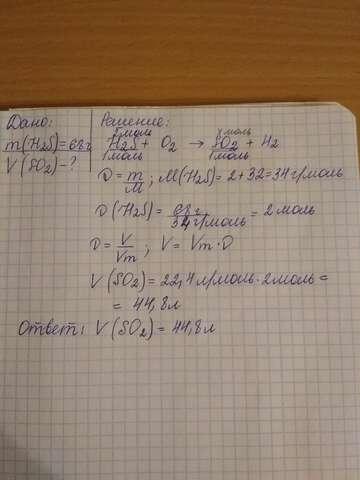 Дано:
m(H2S)=68г
V(SO2)-?
Решение:
2моль x моль
H2S + O2 → SO2 + H2
1моль 1моль
ν = m/M; M(H2S) = 2+32=34г/моль
ν(H2S) = 68г/34г/моль = 2моль
ν = V/Vm; V = Vm·ν
V(SO2) = 22,4л/моль·2моль =
= 44,8л
Ответ: V(SO2) = 44,8л